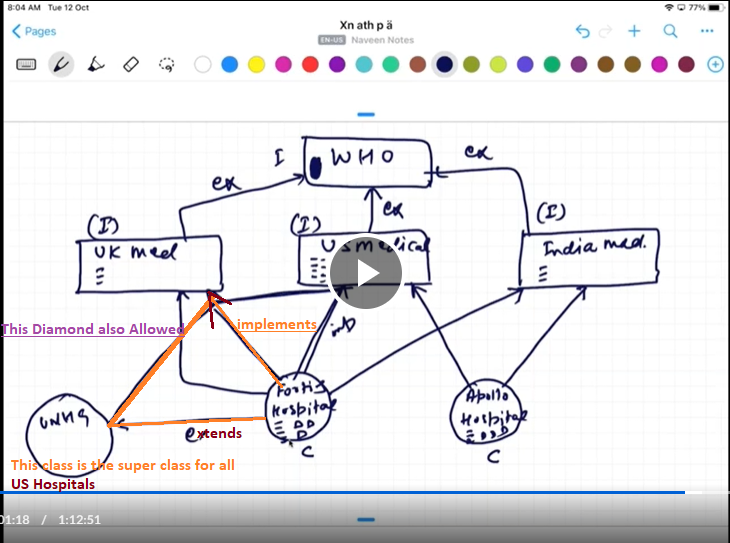 8:04 AM Tue 12 Oct
77%
Pages
Xn ath p ä
EN-US Naveen Notes
I WHO
ex
ex
ex
(I)
(I)
(I)
UK Med
US Medical
India med.
This Diamond also Allowed
implements
UNHS
Fortis
Hospital
Apollo
Hospital
extends
C
C
This class is the super class for all
US Hospitals
01:18 / 1:12:51